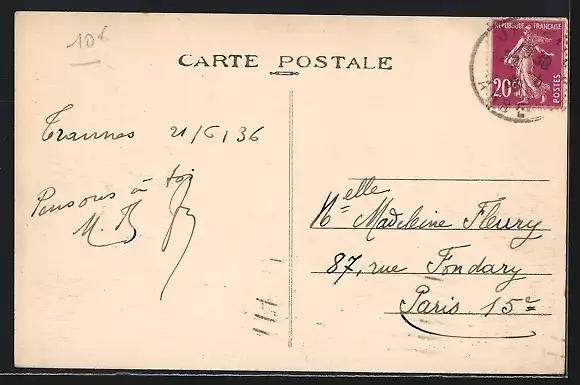 10€
CARTE POSTALE
RÉPUBLIQUE FRANÇAISE
20c
POSTES
Trannes 21/6/36
Pensons à toi
M. B
Melle Madeleine Fleury
87, rue Fondary
Paris 15e